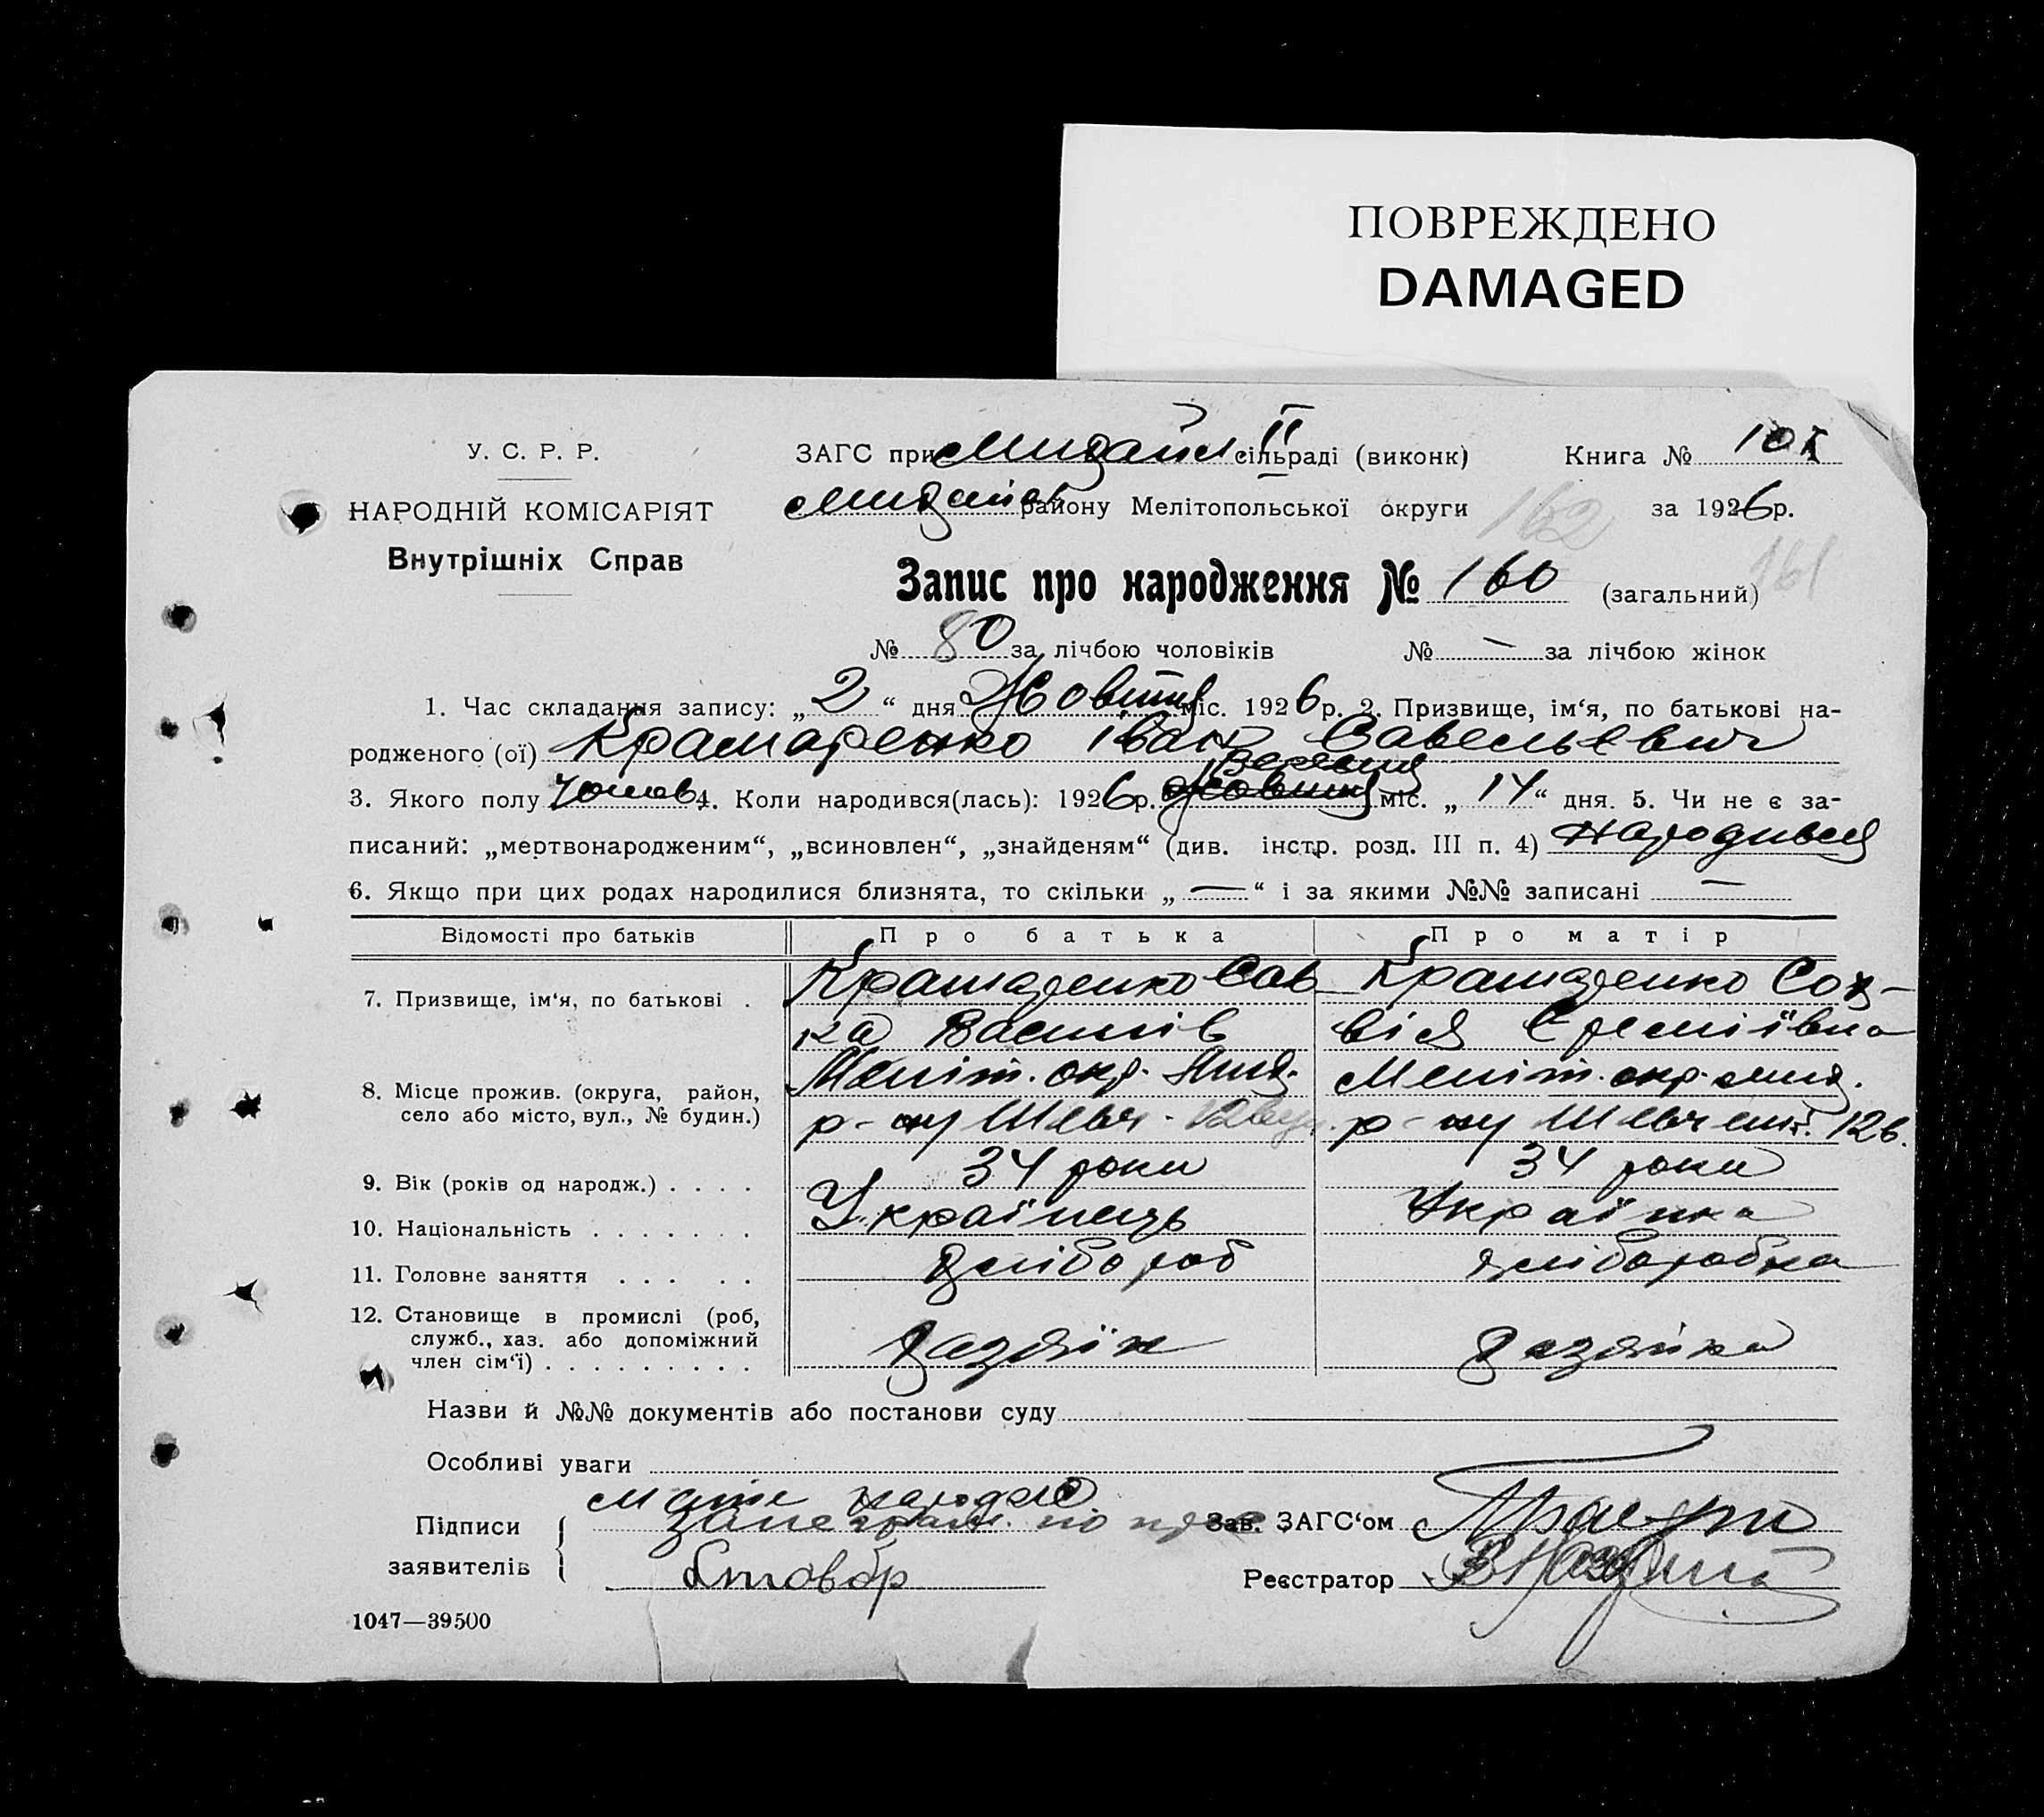 ПОВРЕЖДЕНО
DAMAGED
У. С. Р. Р.
НАРОДНІЙ КОМІСАРІЯТ
Внутрішніх Справ
ЗАГС при Михайл II сільраді (виконк) Книга № 10
Михайлів району Мелітопольської округи за 1926р.
162
161
Запис про народження № 160 (загальний)
№ 80 за лічбою чоловіків № — за лічбою жінок
1. Час складання запису: „2“ дня Жовтня міс. 1926р. 2. Призвище, ім‘я, по батькові на-
родженого (ої) Крамаренко Іван Савельєвич
Вересня
3. Якого полу Чолов 4. Коли народився(лась): 1926р. Жовтня міс. „14“ дня. 5. Чи не є за-
писаний: „мертвонародженим“, „всиновлен“, „знайденям“ (див. інстр. розд. III п. 4) Народився
6. Якщо при цих родах народилися близнята, то скільки „—“ і за якими №№ записані —
Відомості про батьків Про батька Про матір
7. Призвище, ім‘я, по батькові . Крамаренко Сав Крамаренко Соф-
ка Васильів вія Єреміївна
8. Місце прожив. (округа, район, Меліт. окр. Мих. Меліт. окр. Мих.
село або місто, вул., № будин.) р-ну Шевч. р-ну Шевченк. 126.
9. Вік (років од народж.) . . . . 34 роки 34 роки
10. Національність . . . . . . . Українець Українка
11. Головне заняття . . . . . хлібороб хліборобка
12. Становище в промислі (роб,
служб., хаз. або допоміжний хазяїн хазяйка
член сім‘ї) . . . . . . . . .
Назви й №№ документів або постанови суду
Особливі уваги
мати
Підписи
заявителів
Зав. ЗАГС‘ом
Реєстратор
1047—39500